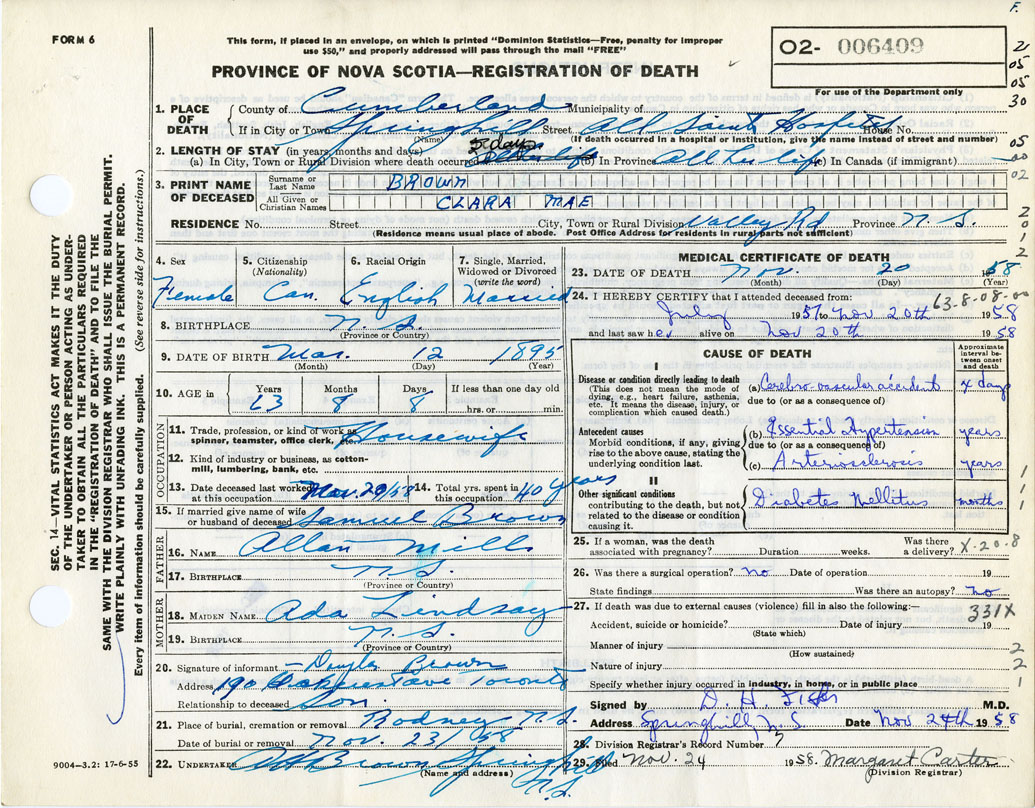 F.
FORM 6
This form, if placed in an envelope, on which is printed "Dominion Statistics—Free, penalty for improper
use $50," and properly addressed will pass through the mail "FREE"
PROVINCE OF NOVA SCOTIA—REGISTRATION OF DEATH
O2- 006409
For use of the Department only
21
05
05
30
05
00
02
2
0
1
2
1. PLACE OF DEATH
County of Cumberland Municipality of
If in City or Town Springhill Street All Saints Hospital House No.
(Name) (If death occurred in a hospital or institution, give the name instead of street and number)
2. LENGTH OF STAY (in years, months and days) 5 days
(a) In City, Town or Rural Division where death occurred (b) In Province All her life (c) In Canada (if immigrant)
3. PRINT NAME OF DECEASED
Surname or Last Name BROWN
All Given or Christian Names CLARA MAE
RESIDENCE No. Street City, Town or Rural Division Valley Rd Province N.S.
(Residence means usual place of abode. Post Office Address for residents in rural parts not sufficient)
4. Sex Female
5. Citizenship (Nationality) Can.
6. Racial Origin English
7. Single, Married, Widowed or Divorced (write the word) Married
8. BIRTHPLACE N.S.
(Province or Country)
9. DATE OF BIRTH Mar. 12 1895
(Month) (Day) (Year)
10. AGE in Years 63 Months 8 Days 8 If less than one day old hrs. or min.
OCCUPATION
11. Trade, profession, or kind of work as spinner, teamster, office clerk, etc. Housewife
12. Kind of industry or business, as cotton-mill, lumbering, bank, etc.
13. Date deceased last worked at this occupation Nov. 20/58
14. Total yrs. spent in this occupation 40 years
15. If married give name of wife or husband of deceased Samuel Brown
FATHER
16. NAME Allan Mills
17. BIRTHPLACE N.S.
(Province or Country)
MOTHER
18. MAIDEN NAME Ada Lindsay
19. BIRTHPLACE N.S.
(Province or Country)
20. Signature of informant Douglas Brown
Address 190 Ave Toronto
Relationship to deceased Son.
21. Place of burial, cremation or removal Rodney N.S.
Date of burial or removal Nov. 23/58
22. UNDERTAKER Brown Springhill N.S.
(Name and address)
MEDICAL CERTIFICATE OF DEATH
23. DATE OF DEATH Nov. 20 1958
(Month) (Day) (Year)
24. I HEREBY CERTIFY that I attended deceased from: 63-8-08-00
July 1951 to Nov 20th 1958
and last saw her alive on Nov 20th 1958
CAUSE OF DEATH
Approximate interval between onset and death
I
Disease or condition directly leading to death
(This does not mean the mode of dying, e.g., heart failure, asthenia, etc. It means the disease, injury, or complication which caused death.)
(a) Cerebro vascular accident
due to (or as a consequence of)
Antecedent causes
Morbid conditions, if any, giving rise to the above cause, stating the underlying condition last.
(b) Essential Hypertension years
due to (or as a consequence of)
(c) Arteriosclerosis years
II
Other significant conditions
contributing to the death, but not related to the disease or condition causing it.
Diabetes Mellitus months
1
1
1
25. If a woman, was the death associated with pregnancy? Duration weeks. Was there a delivery? X-20-8
26. Was there a surgical operation? no Date of operation 19
State findings Was there an autopsy? no
27. If death was due to external causes (violence) fill in also the following:—
331X
Accident, suicide or homicide? Date of injury 19
(State which)
Manner of injury 2
(How sustained)
Nature of injury 2
Specify whether injury occurred in industry, in home, or in public place 1
Signed by D. H. M.D.
Address Springhill, N.S. Date Nov 24th 1958
28. Division Registrar's Record Number 7
29. Filed Nov. 24 1958. Margaret Carter
(Division Registrar)
SEC. 14—VITAL STATISTICS ACT MAKES IT THE DUTY
OF THE UNDERTAKER OR PERSON ACTING AS UNDER-
TAKER TO OBTAIN ALL THE PARTICULARS REQUIRED
IN THE "REGISTRATION OF DEATH" AND TO FILE THE
SAME WITH THE DIVISION REGISTRAR WHO SHALL ISSUE THE BURIAL PERMIT.
WRITE PLAINLY WITH UNFADING INK. THIS IS A PERMANENT RECORD.
Every item of information should be carefully supplied. (See reverse side for instructions.)
9004—3.2: 17-6-55